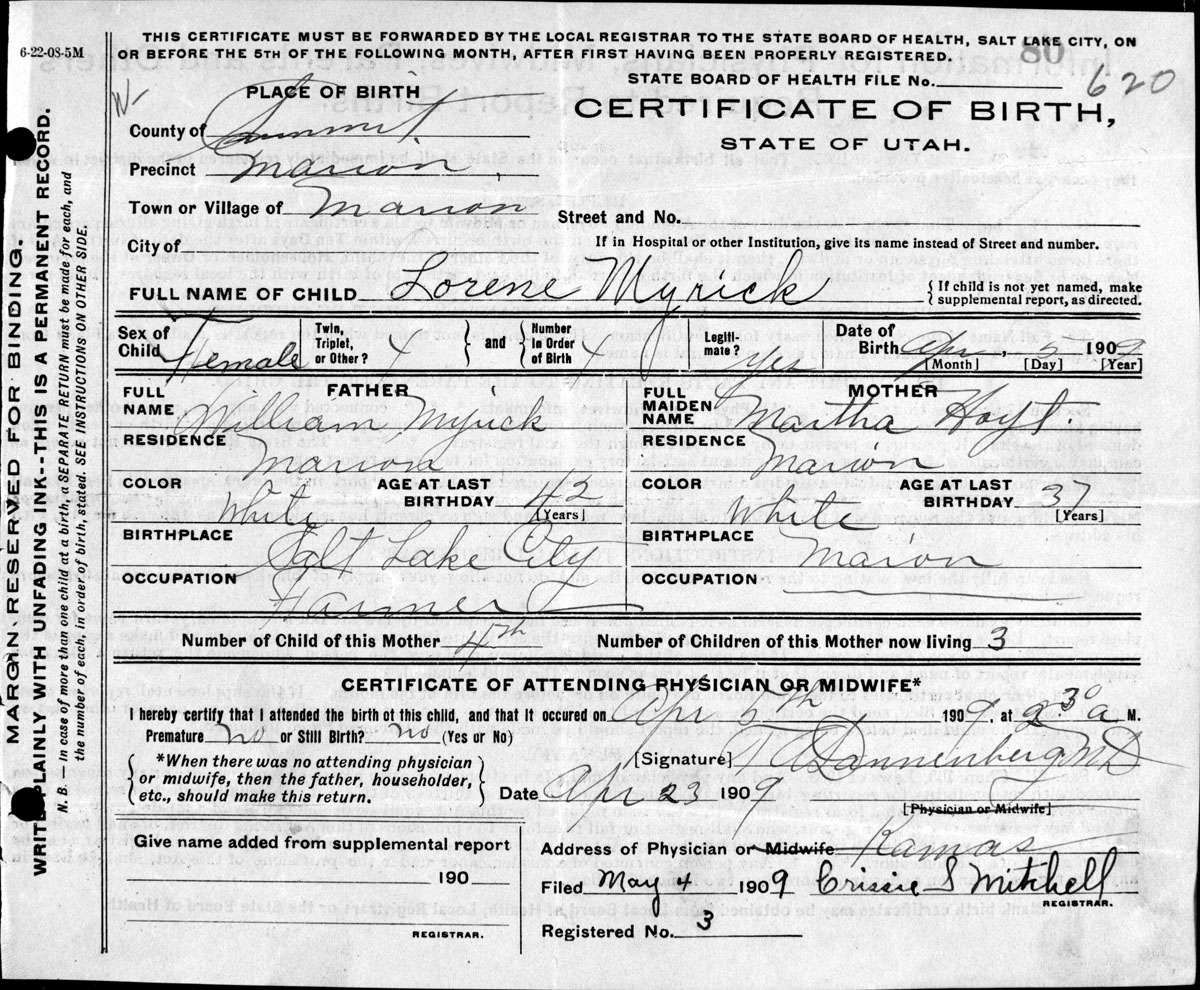 THIS CERTIFICATE MUST BE FORWARDED BY THE LOCAL REGISTRAR TO THE STATE BOARD OF HEALTH, SALT LAKE CITY, ON
OR BEFORE THE 5TH OF THE FOLLOWING MONTH, AFTER FIRST HAVING BEEN PROPERLY REGISTERED.
6-22-08-5M
80
STATE BOARD OF HEALTH FILE No.
620
PLACE OF BIRTH
CERTIFICATE OF BIRTH,
STATE OF UTAH.
County of Summit
Precinct Marion
Town or Village of Marion
Street and No.
City of
If in Hospital or other Institution, give its name instead of Street and number.
FULL NAME OF CHILD Lorene Myrick
{If child is not yet named, make
supplemental report, as directed.
Sex of Child Female
Twin, Triplet, or Other?
and
Number in Order of Birth
Legiti-mate? Yes
Date of Birth 5 1909
[Month] [Day] [Year]
FATHER
FULL NAME William Myrick
RESIDENCE Marion
COLOR White
AGE AT LAST BIRTHDAY 42 [Years]
BIRTHPLACE Salt Lake City
OCCUPATION Farmer
MOTHER
FULL MAIDEN NAME Martha Hoyt
RESIDENCE Marion
COLOR White
AGE AT LAST BIRTHDAY 37 [Years]
BIRTHPLACE Marion
OCCUPATION
Number of Child of this Mother 4th
Number of Children of this Mother now living 3
CERTIFICATE OF ATTENDING PHYSICIAN OR MIDWIFE*
I hereby certify that I attended the birth of this child, and that it occured on Apr 5th 1909, at 2 30 a M.
Premature no or Still Birth? no (Yes or No)
*When there was no attending physician
or midwife, then the father, householder,
etc., should make this return.
[Signature] Dannenberg MD
Date Apr 23 1909
[Physician or Midwife]
Give name added from supplemental report
190
REGISTRAR.
Address of Physician or Midwife Kamas
Filed May 4 1909 Crissie S Mitchell
REGISTRAR.
Registered No. 3
MARGIN RESERVED FOR BINDING.
WRITE PLAINLY WITH UNFADING INK--THIS IS A PERMANENT RECORD.
N. B. — In case of more than one child at a birth, a SEPARATE RETURN must be made for each, and
the number of each, in order of birth, stated. SEE INSTRUCTIONS ON OTHER SIDE.